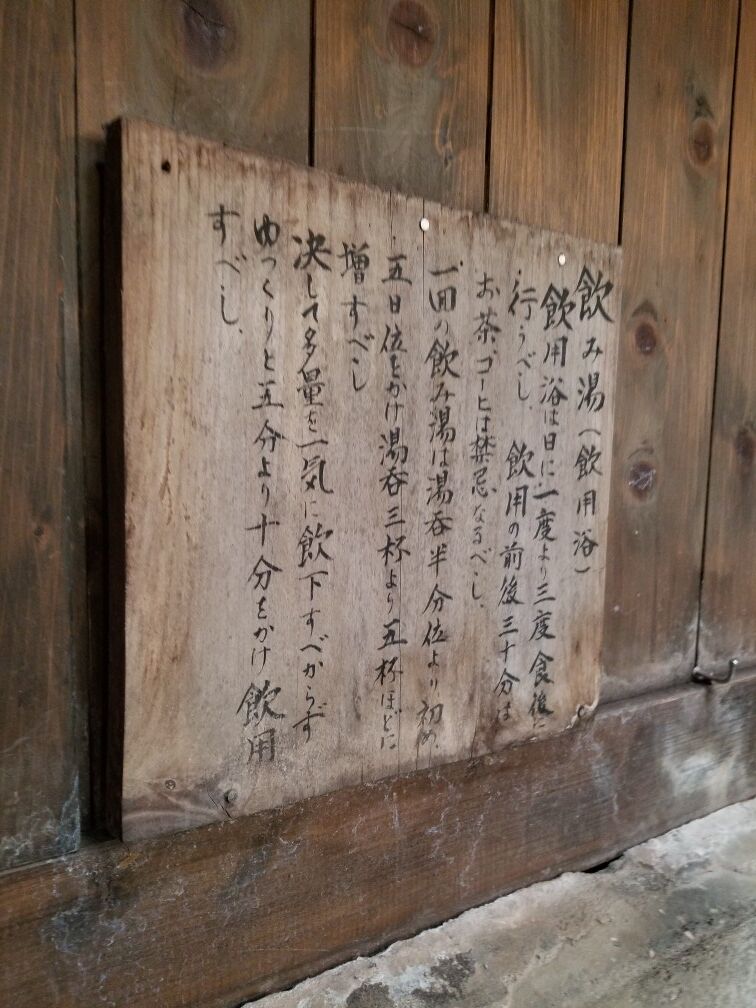 飲み湯（飲用浴）
飲用浴は日に一度より三度食後に
行うべし、飲用の前後三十分は
お茶コーヒは禁忌なるべし、
一回の飲み湯は湯呑半分位より初め、
五日位をかけ湯呑三杯より五杯ほどに
増すべし
決して多量を一気に飲下すべからず
ゆっくりと五分より十分をかけ飲用
すべし、